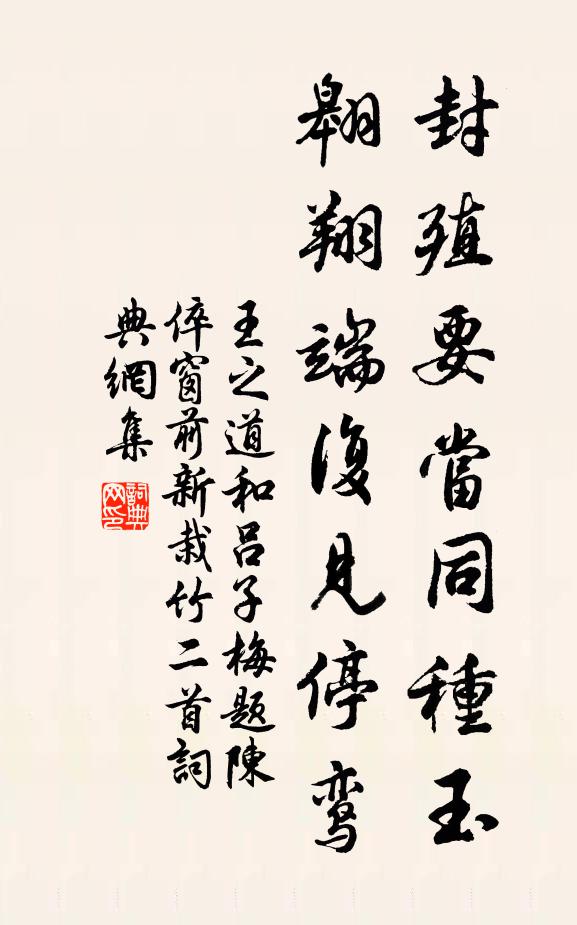 封殖要當同種玉
翱翔端復見停鸾
王之道和吕子梅题陳
倅窗前新栽竹二首詞
典網集
詞典网印